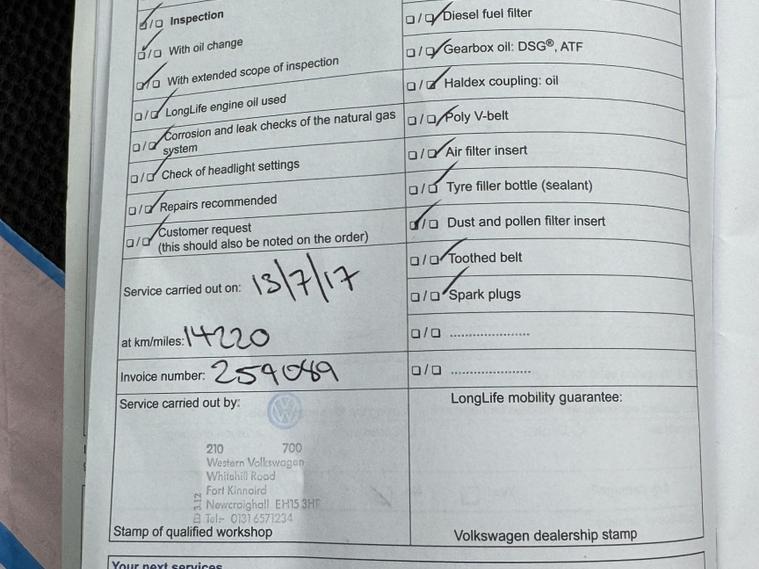 Inspection
With oil change
With extended scope of inspection
LongLife engine oil used
Corrosion and leak checks of the natural gas
system
Check of headlight settings
Repairs recommended
Customer request
(this should also be noted on the order)
Service carried out on: 13/7/17
at km/miles: 14220
Invoice number: 259089
Service carried out by:
210 700
Western Volkswagen
Whitehill Road
Fort Kinnaird
Newcraighall EH15 3HF
Tel:- 0131 6571234
Stamp of qualified workshop
Diesel fuel filter
Gearbox oil: DSG®, ATF
Haldex coupling: oil
Poly V-belt
Air filter insert
Tyre filler bottle (sealant)
Dust and pollen filter insert
Toothed belt
Spark plugs
LongLife mobility guarantee:
Volkswagen dealership stamp
Your next services